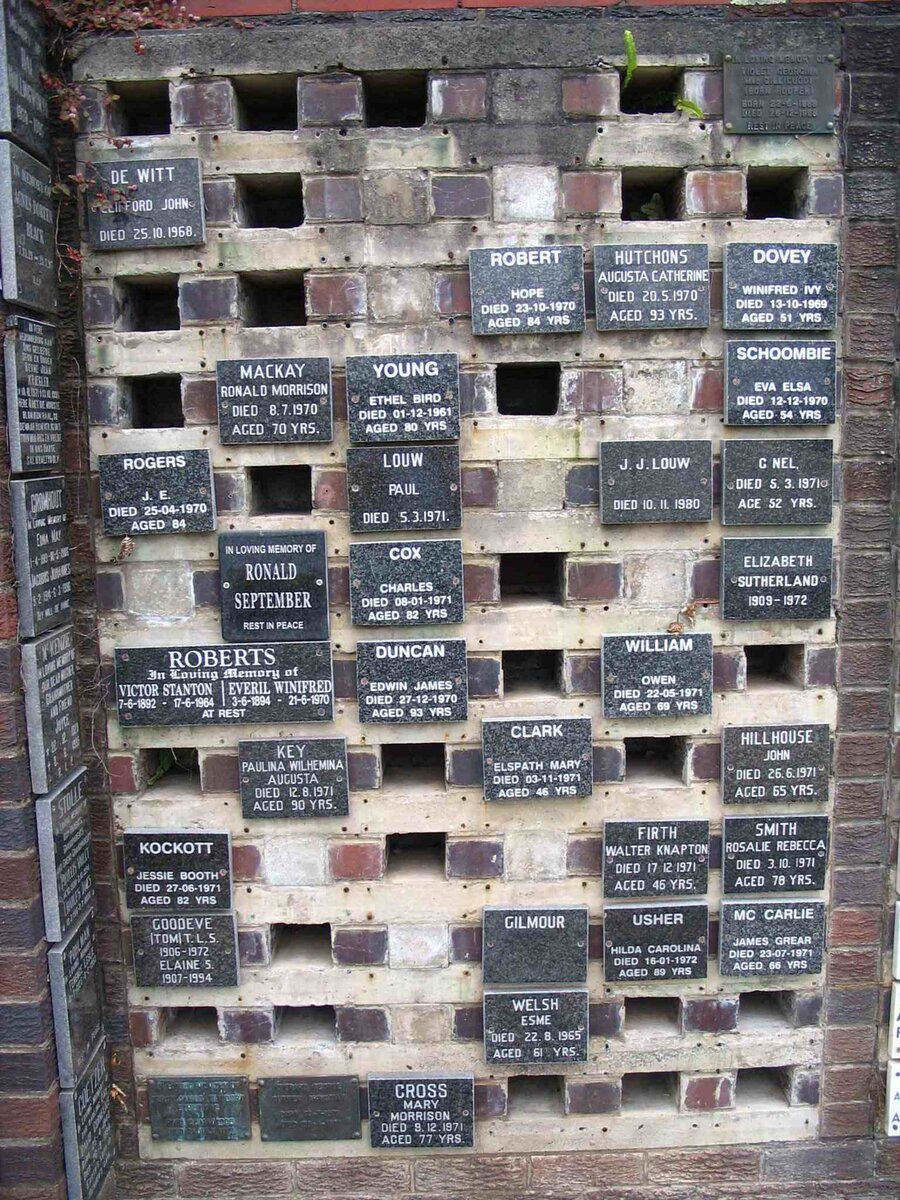 IN LOVING MEMORY OF
VIOLET GEORGINA
(BORN HOOPER)
BORN 22-6-1888
REST IN PEACE
DE WITT
CLIFFORD JOHN
DIED 25.10.1968.
ROBERT
HOPE
DIED 23-10-1970
AGED 84 YRS
HUTCHONS
AUGUSTA CATHERINE
DIED 20.5.1970
AGED 93 YRS.
DOVEY
WINIFRED IVY
DIED 13-10-1969
AGED 51 YRS
MACKAY
RONALD MORRISON
DIED 8.7.1970
AGED 70 YRS.
YOUNG
ETHEL BIRD
DIED 01-12-1961
AGED 80 YRS
SCHOOMBIE
EVA ELSA
DIED 12-12-1970
AGED 54 YRS
ROGERS
J. E.
DIED 25-04-1970
AGED 84
LOUW
PAUL
DIED 5.3.1971.
J. J. LOUW
DIED 10.11.1980
C NEL,
DIED 5.3.1971
AGE 52 YRS.
IN LOVING MEMORY OF
RONALD
SEPTEMBER
REST IN PEACE
COX
CHARLES
DIED 08-01-1971
AGED 82 YRS
ELIZABETH
SUTHERLAND
1909-1972
ROBERTS
In Loving Memory of
VICTOR STANTON
7-6-1892 - 17-6-1964
EVERIL WINIFRED
3-6-1894 - 21-6-1970
AT REST
DUNCAN
EDWIN JAMES
DIED 27-12-1970
AGED 93 YRS
WILLIAM
OWEN
DIED 22-05-1971
AGED 69 YRS
KEY
PAULINA WILHEMINA
AUGUSTA
DIED 12.8.1971
AGED 90 YRS.
CLARK
ELSPATH MARY
DIED 03-11-1971
AGED 46 YRS
HILLHOUSE
JOHN
DIED 26.6.1971
AGED 65 YRS.
KOCKOTT
JESSIE BOOTH
DIED 27-06-1971
AGED 82 YRS
FIRTH
WALTER KNAPTON
DIED 17.12.1971
AGED 46 YRS.
SMITH
ROSALIE REBECCA
DIED 3.10.1971
AGED 78 YRS.
GOODEVE
(TOM) T.L.S.
1906-1972
ELAINE S.
1907-1994
GILMOUR
USHER
HILDA CAROLINA
DIED 16-01-1972
AGED 89 YRS
MC CARLIE
JAMES GREAR
DIED 23-07-1971
AGED 66 YRS
WELSH
ESME
DIED 22.8.1965
AGED 61 YRS.
CROSS
MARY
MORRISON
DIED 9.12.1971
AGED 77 YRS.
BLACK
GROMHOUT
In Loving Memory of
EDNA MAY
STOLLE